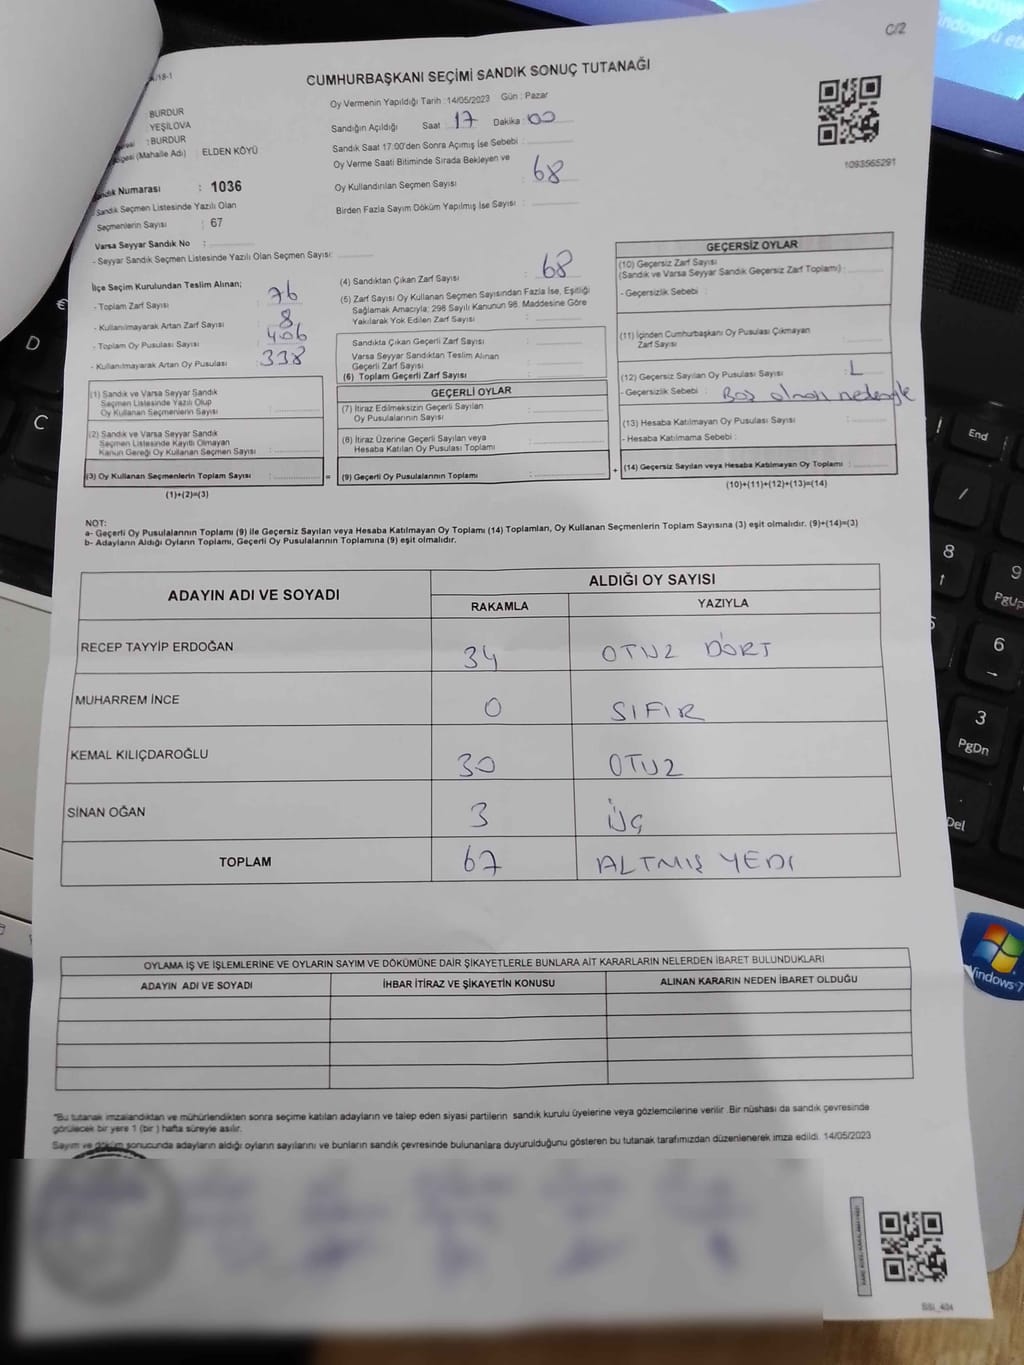 C/2
/18-1
CUMHURBAŞKANI SEÇİMİ SANDIK SONUÇ TUTANAĞI
BURDUR
: YEŞİLOVA
: BURDUR
(Mahalle Adı) : ELDEN KÖYÜ
Oy Vermenin Yapıldığı Tarih : 14/05/2023 Gün : Pazar
Sandığın Açıldığı Saat 17 Dakika : 00
Sandık Saat 17:00'den Sonra Açımış İse Sebebi :
Oy Verme Saati Bitiminde Sırada Bekleyen ve
Oy Kullandırılan Seçmen Sayısı : 68
Birden Fazla Sayım Döküm Yapılmış İse Sayısı :
1093565291
Numarası : 1036
Sandık Seçmen Listesinde Yazılı Olan
Seçmenlerin Sayısı : 67
Varsa Seyyar Sandık No :
- Seyyar Sandık Seçmen Listesinde Yazılı Olan Seçmen Sayısı:
İlçe Seçim Kurulundan Teslim Alınan;
- Toplam Zarf Sayısı : 76
- Kullanılmayarak Artan Zarf Sayısı : 8
- Toplam Oy Pusulası Sayısı : 406
- Kullanılmayarak Artan Oy Pusulası : 338
(1) Sandık ve Varsa Seyyar Sandık
Seçmen Listesinde Yazılı Olup
Oy Kullanan Seçmenlerin Sayısı :
(2) Sandık ve Varsa Seyyar Sandık
Seçmen Listesinde Kayıtlı Olmayan
Kanun Gereği Oy Kullanan Seçmen Sayısı :
(3) Oy Kullanan Seçmenlerin Toplam Sayısı :
(1)+(2)=(3)
=
(4) Sandıktan Çıkan Zarf Sayısı : 68
(5) Zarf Sayısı Oy Kullanan Seçmen Sayısından Fazla İse, Eşitliği
Sağlamak Amacıyla; 298 Sayılı Kanunun 98. Maddesine Göre
Yakılarak Yok Edilen Zarf Sayısı :
Sandıkta Çıkan Geçerli Zarf Sayısı :
Varsa Seyyar Sandıktan Teslim Alınan
Geçerli Zarf Sayısı :
(6) Toplam Geçerli Zarf Sayısı :
GEÇERLİ OYLAR
(7) İtiraz Edilmeksizin Geçerli Sayılan
Oy Pusulalarının Sayısı :
(8) İtiraz Üzerine Geçerli Sayılan veya
Hesaba Katılan Oy Pusulası Toplamı :
(9) Geçerli Oy Pusulalarının Toplamı :
+
GEÇERSİZ OYLAR
(10) Geçersiz Zarf Sayısı
(Sandık ve Varsa Seyyar Sandık Geçersiz Zarf Toplamı) :
- Geçersizlik Sebebi :
(11) İçinden Cumhurbaşkanı Oy Pusulası Çıkmayan
Zarf Sayısı :
(12) Geçersiz Sayılan Oy Pusulası Sayısı : 1
- Geçersizlik Sebebi : Boş olması nedeniyle
(13) Hesaba Katılmayan Oy Pusulası Sayısı :
- Hesaba Katılmama Sebebi :
(14) Geçersiz Sayılan veya Hesaba Katılmayan Oy Toplamı :
(10)+(11)+(12)+(13)=(14)
NOT:
a- Geçerli Oy Pusulalarının Toplamı (9) ile Geçersiz Sayılan veya Hesaba Katılmayan Oy Toplamı (14) Toplamları, Oy Kullanan Seçmenlerin Toplam Sayısına (3) eşit olmalıdır. (9)+(14)=(3)
b- Adayların Aldığı Oyların Toplamı, Geçerli Oy Pusulalarının Toplamına (9) eşit olmalıdır.
ADAYIN ADI VE SOYADI ALDIĞI OY SAYISI
RAKAMLA YAZIYLA
RECEP TAYYİP ERDOĞAN 34 OTUZ DÖRT
MUHARREM İNCE 0 SIFIR
KEMAL KILIÇDAROĞLU 30 OTUZ
SİNAN OĞAN 3 ÜÇ
TOPLAM 67 ALTMIŞ YEDİ
OYLAMA İŞ VE İŞLEMLERİNE VE OYLARIN SAYIM VE DÖKÜMÜNE DAİR ŞİKAYETLERLE BUNLARA AİT KARARLARIN NELERDEN İBARET BULUNDUKLARI
ADAYIN ADI VE SOYADI İHBAR İTİRAZ VE ŞİKAYETİN KONUSU ALINAN KARARIN NEDEN İBARET OLDUĞU
*Bu tutanak imzalandıktan ve mühürlendikten sonra seçime katılan adayların ve talep eden siyasi partilerin sandık kurulu üyelerine veya gözlemcilerine verilir .Bir nüshası da sandık çevresinde
görülecek bir yere 1 (bir ) hafta süreyle asılır.
Sayım ve döküm sonucunda adayların aldığı oyların sayılarını ve bunların sandık çevresinde bulunanlara duyurulduğunu gösteren bu tutanak tarafımızdan düzenlenerek imza edildi. 14/05/2023
End
/
8
9
PgUp
6
3
PgDn
Del
D
C
€
Windows 7